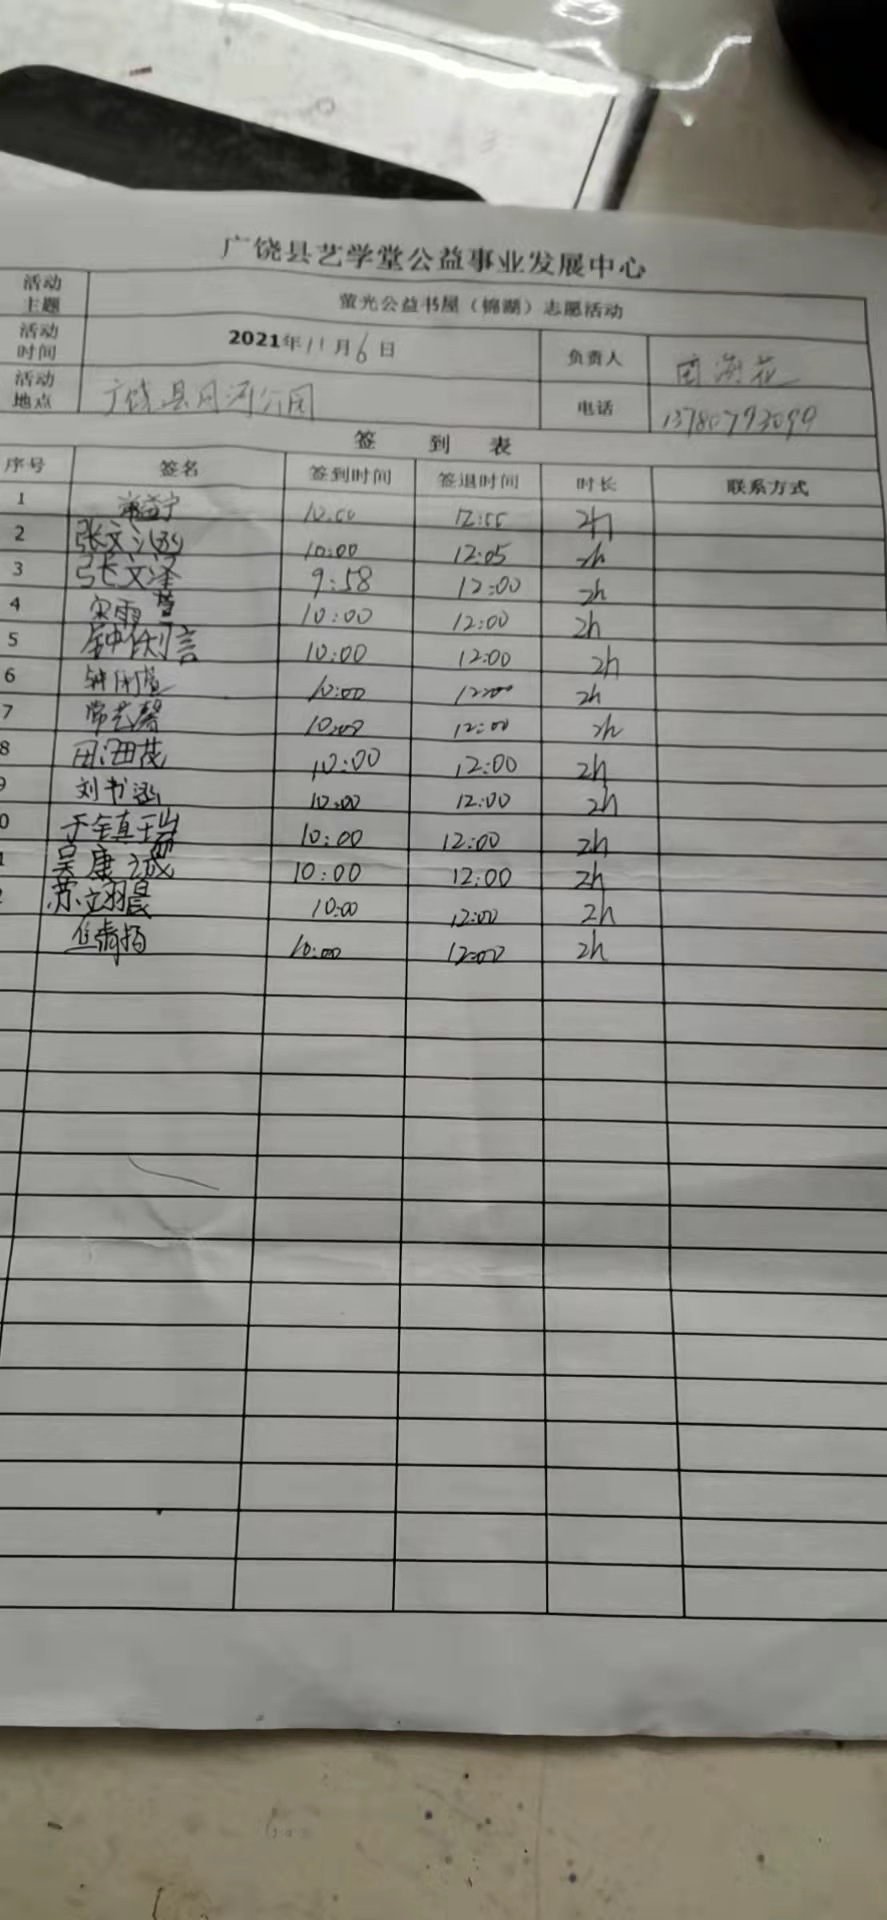 广饶县艺学堂公益事业发展中心
活动主题 萤光公益书屋（锦湖）志愿活动
活动时间 2021年11月6日 负责人
活动地点 广饶县月河公园 电话 13780793099
签到表
序号 签名 签到时间 签退时间 时长 联系方式
1 2h
2 张文 10:00 12:05 2h
3 张文泽 9:58 12:00 2h
4 宋雨萱 10:00 12:00 2h
5 钟 言 10:00 12:00 2h
6 10:00 12:00 2h
7 常艺馨 10:00 12:00 2h
8 田 茂 10:00 12:00 2h
9 刘书涵 10:00 12:00 2h
0 于镇 10:00 12:00 2h
1 吴康诚 10:00 12:00 2h
2 苏立翊晨 10:00 12:00 2h
10:00 12:00 2h